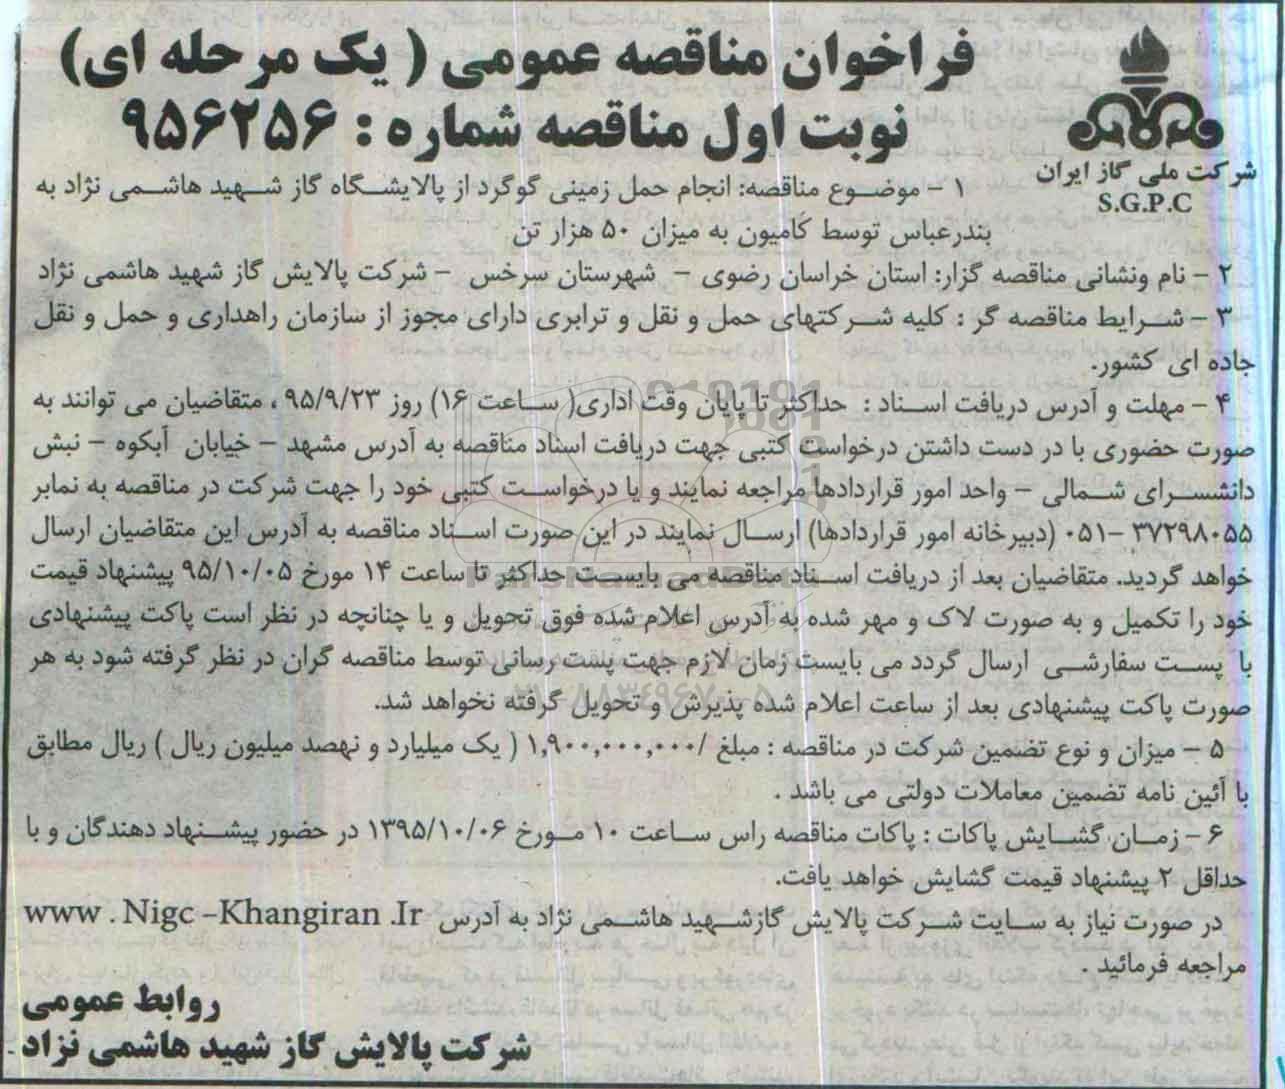 فراخوان مناقصه عمومی ( یک مرحله ای)
نوبت اول مناقصه شماره : ۹۵۶۲۵۶
شرکت ملی گاز ایران
S.G.P.C
۱ – موضوع مناقصه: انجام حمل زمینی گوگرد از پالایشگاه گاز شهید هاشمی نژاد به
بندرعباس توسط کامیون به میزان ۵۰ هزار تن
۲ – نام ونشانی مناقصه گزار: استان خراسان رضوی – شهرستان سرخس – شرکت پالایش گاز شهید هاشمی نژاد
۳ – شرایط مناقصه گر : کلیه شرکتهای حمل و نقل و ترابری دارای مجوز از سازمان راهداری و حمل و نقل
جاده ای کشور.
۴ – مهلت و آدرس دریافت اسناد : حداکثر تا پایان وقت اداری( ساعت ۱۶) روز ۹۵/۹/۲۳ ، متقاضیان می توانند به
صورت حضوری با در دست داشتن درخواست کتبی جهت دریافت اسناد مناقصه به آدرس مشهد – خیابان آبکوه – نبش
دانشسرای شمالی – واحد امور قراردادها مراجعه نمایند و یا درخواست کتبی خود را جهت شرکت در مناقصه به نمابر
۳۷۲۹۸۰۵۵ –۰۵۱ (دبیرخانه امور قراردادها) ارسال نمایند در این صورت اسناد مناقصه به آدرس این متقاضیان ارسال
خواهد گردید. متقاضیان بعد از دریافت اسناد مناقصه می بایست حداکثر تا ساعت ۱۴ مورخ ۹۵/۱۰/۰۵ پیشنهاد قیمت
خود را تکمیل و به صورت لاک و مهر شده به آدرس اعلام شده فوق تحویل و یا چنانچه در نظر است پاکت پیشنهادی
با پست سفارشی ارسال گردد می بایست زمان لازم جهت پست رسانی توسط مناقصه گران در نظر گرفته شود به هر
صورت پاکت پیشنهادی بعد از ساعت اعلام شده پذیرش و تحویل گرفته نخواهد شد.
۵ – میزان و نوع تضمین شرکت در مناقصه : مبلغ /۱,۹۰۰,۰۰۰,۰۰۰ ( یک میلیارد و نهصد میلیون ریال ) ریال مطابق
با آئین نامه تضمین معاملات دولتی می باشد .
۶ – زمان گشایش پاکات : پاکات مناقصه راس ساعت ۱۰ مورخ ۱۳۹۵/۱۰/۰۶ در حضور پیشنهاد دهندگان و با
حداقل ۲ پیشنهاد قیمت گشایش خواهد یافت.
در صورت نیاز به سایت شرکت پالایش گازشهید هاشمی نژاد به آدرس www . Nigc -Khangiran .Ir
مراجعه فرمائید .
روابط عمومی
شرکت پالایش گاز شهید هاشمی نژاد